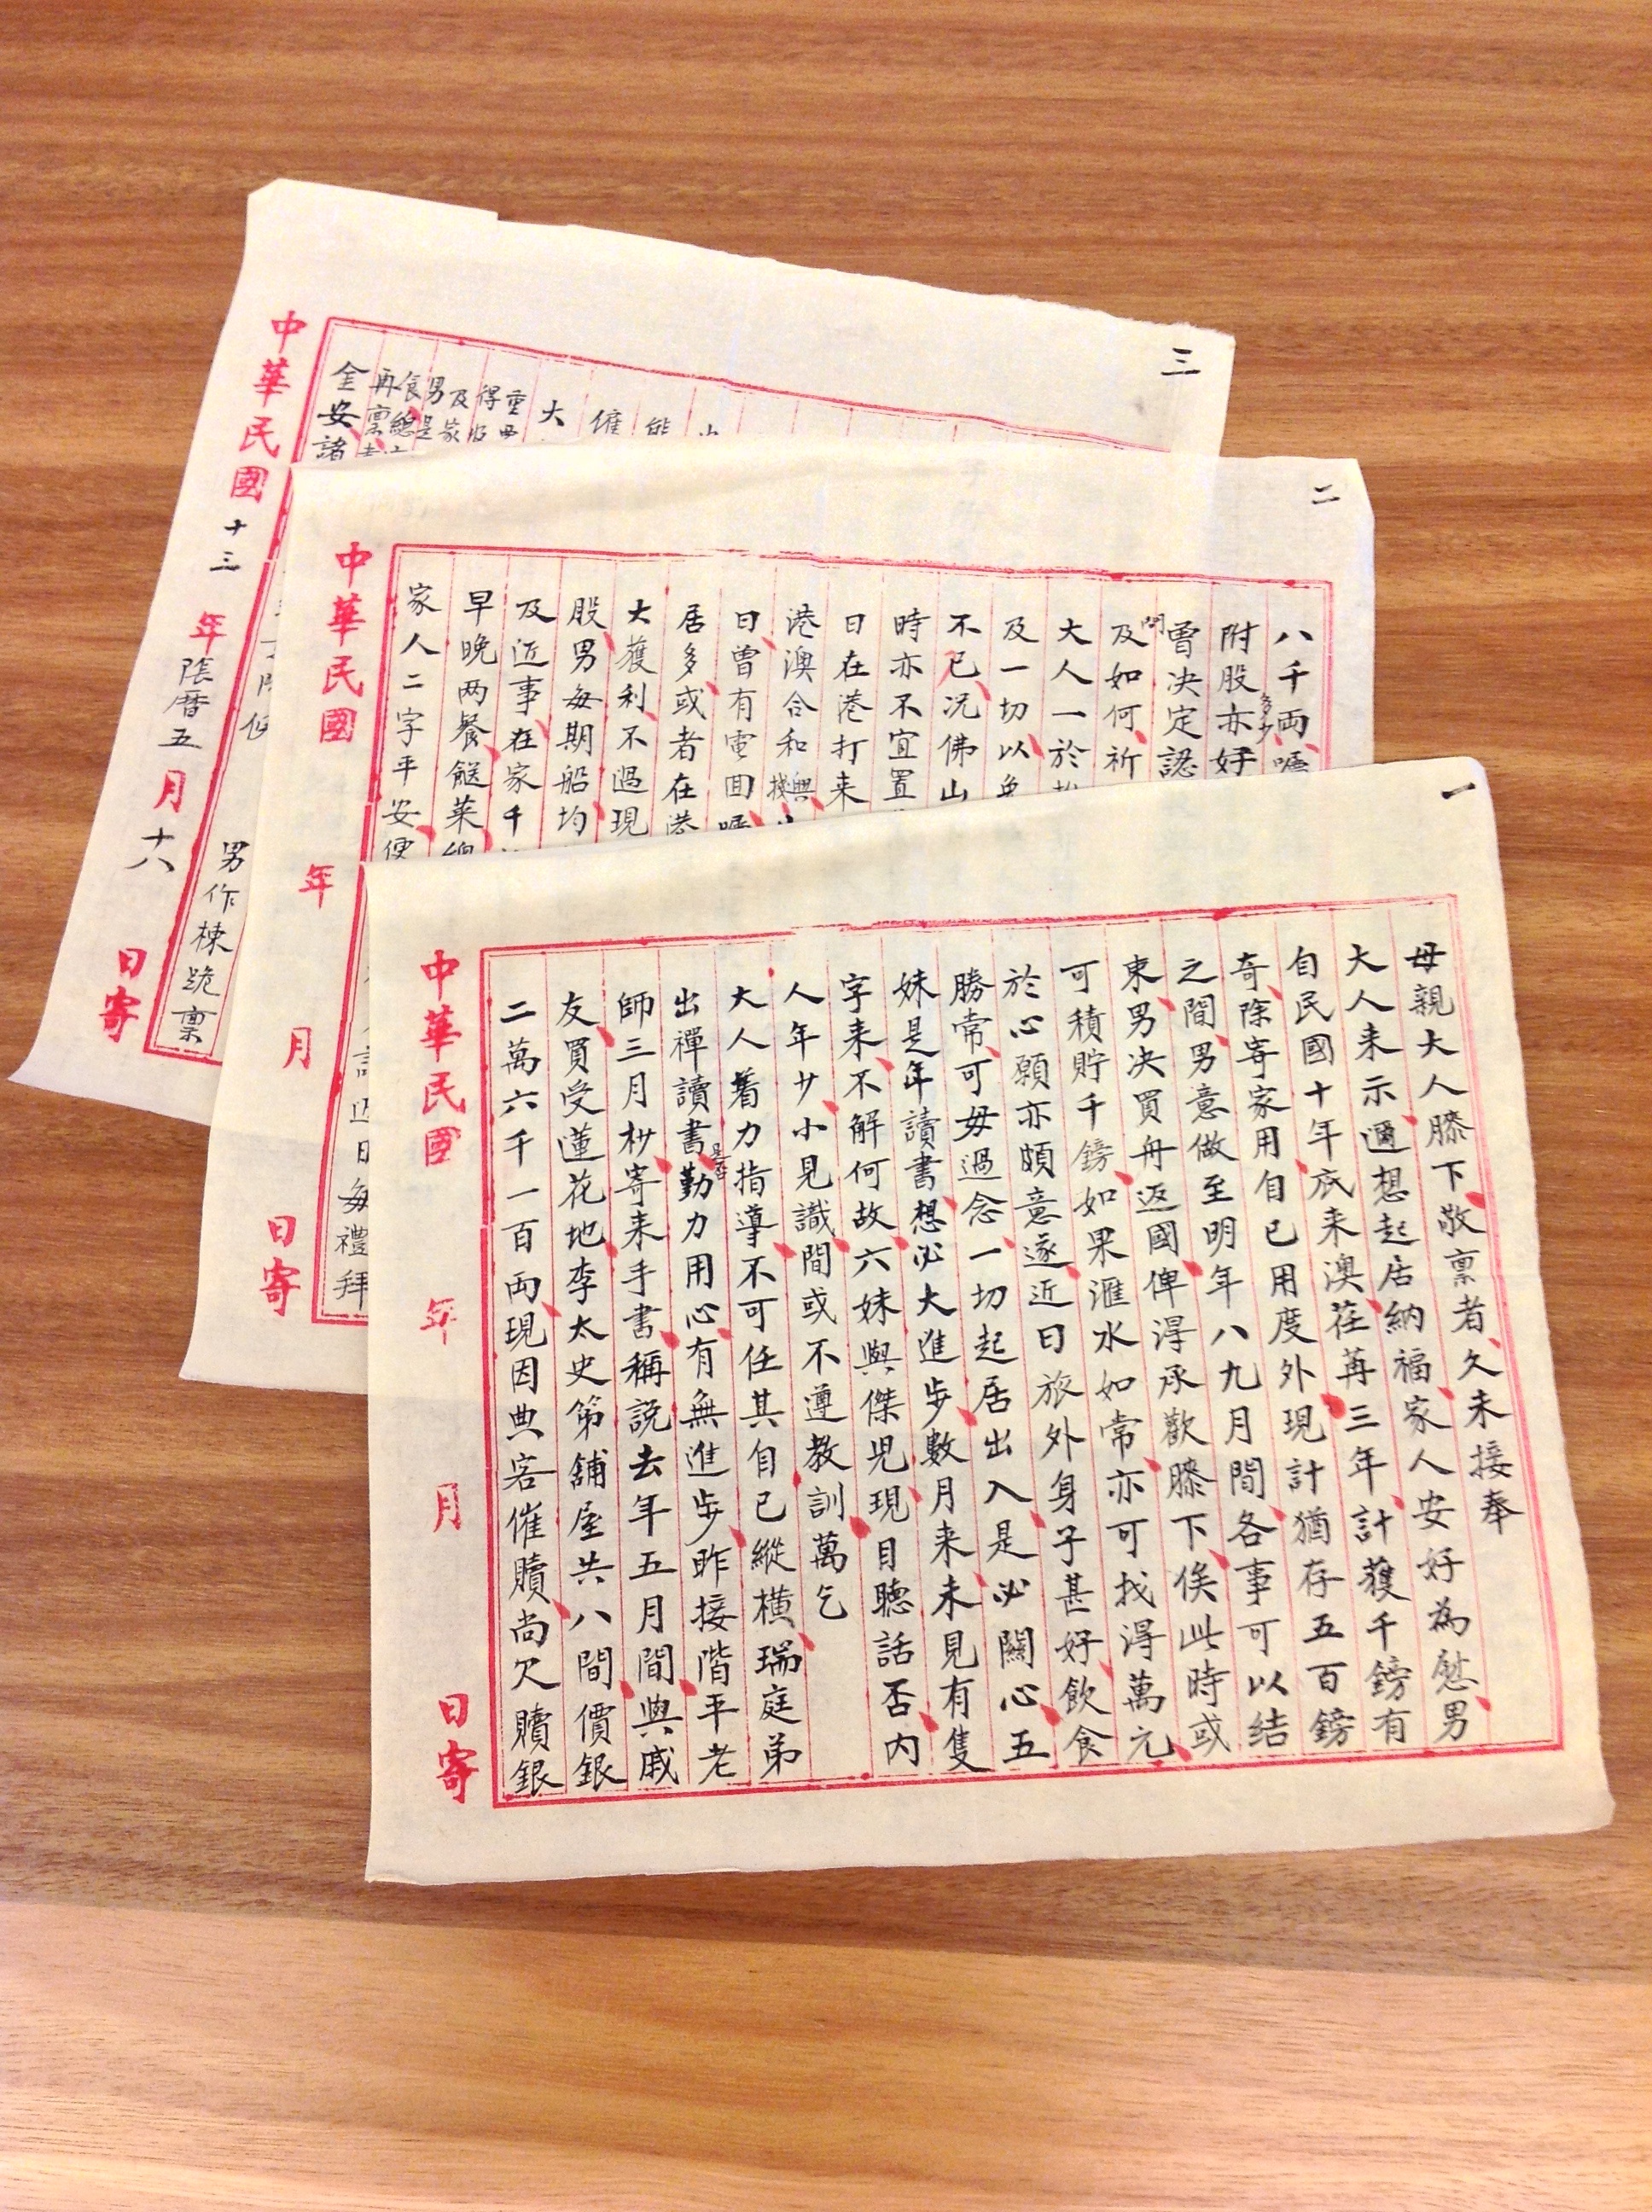 一
母親大人膝下敬禀者久未接奉
大人来示邇想起居納福家人安好為慰男
自民國十年底来澳荏苒三年計獲千鎊有
奇除寄家用自已用度外現計猶存五百鎊
之間男意做至明年八九月間各事可以結
束男決買舟返國俾得承歡膝下俟此時或
可積貯千鎊如果滙水如常亦可找得萬元
於心願亦頗意遂近日旅外身子甚好飲食
勝常可毋過念一切起居出入是必關心五
妹是年讀書想必大進步數月来未見有隻
字来不解何故六妹與傑児現目聽話否内
人年廿小見識間或不遵教訓萬乞
大人着力指導不可任其自已縱橫瑞庭弟
出禪讀書是否勤力用心有無進步昨接階平老
師三月杪寄来手書稱説去年五月間與戚
友買受蓮花地李太史第舖屋共八間價銀
二萬六千一百両現因典客催贖尚欠贖銀
中華民國 年 月 日寄
二
八千両嘱
附股亦好
曾決定認
及如何祈
大人一於
及一切以免
不已况佛山
時亦不宜置
日在港打来
港澳合和興
日曾有電囬
居多或者在港
大獲利不過現
股男每期船均
及近事在家千
早晚両餐餸菜
家人二字平安便
每禮拜
中華民國 年 月 日寄
三
大
催
重
得
及家
男是
食總
再禀
金安諸
男作棟跪禀
中華民國十三年陰曆五月十六日寄